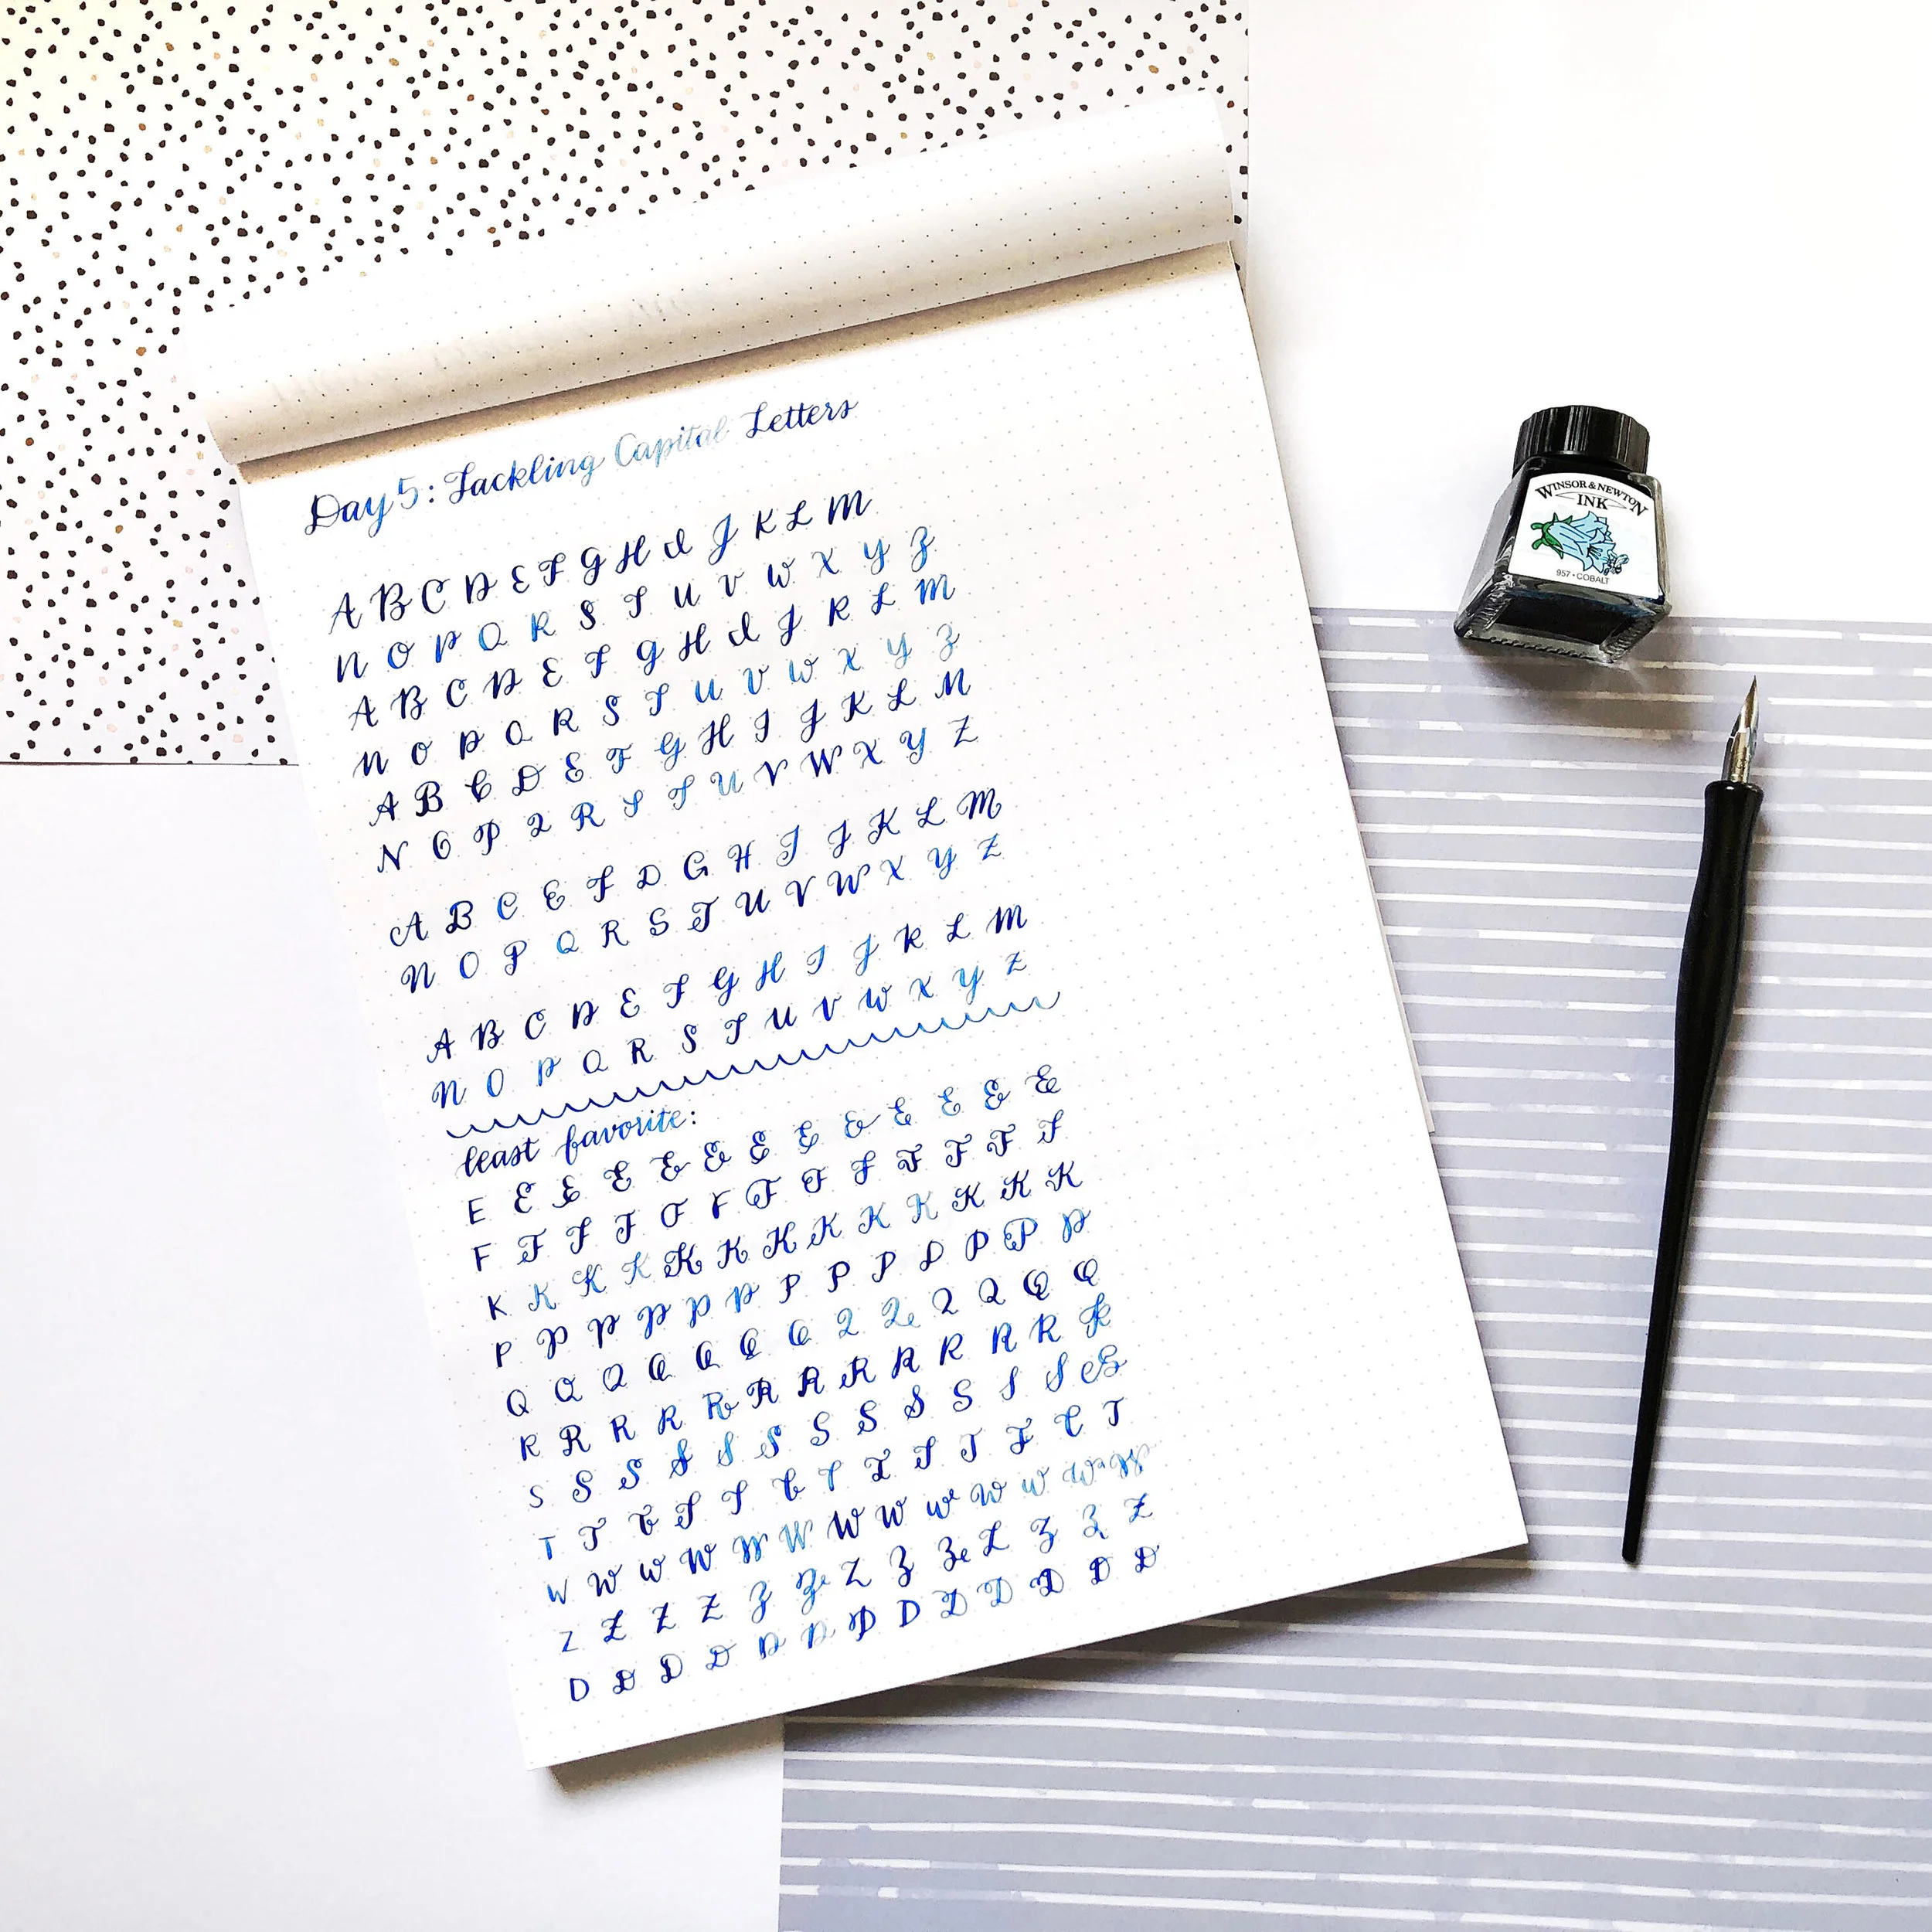 Day 5: Tackling Capital Letters
A B C D E F G H I J K L M
N O P Q R S T U V W X Y Z
A B C D E F G H I J K L M
N O P Q R S T U V W X Y Z
A B C D E F G H I J K L M
N O P Q R S T U V W X Y Z
A B C E F D G H I J K L M
N O P Q R S T U V W X Y Z
A B C D E F G H I J K L M
N O P Q R S T U V W X Y Z
least favorite:
E E E E E E E E E E E E E
F F F F F F F F F F F F F
K K K K K K K K K K K K K
P P P P P P P P P P P P P
Q Q Q Q Q Q Q Q Q Q Q Q Q
R R R R R R R R R R R R R
S S S S S S S S S S S S S
T T T T T T T T T T T T T
W W W W W W W W W W W W W
Z Z Z Z Z Z Z Z Z Z Z Z Z
D D D D D D D D D D D D D
WINSOR & NEWTON
INK
957 • COBALT